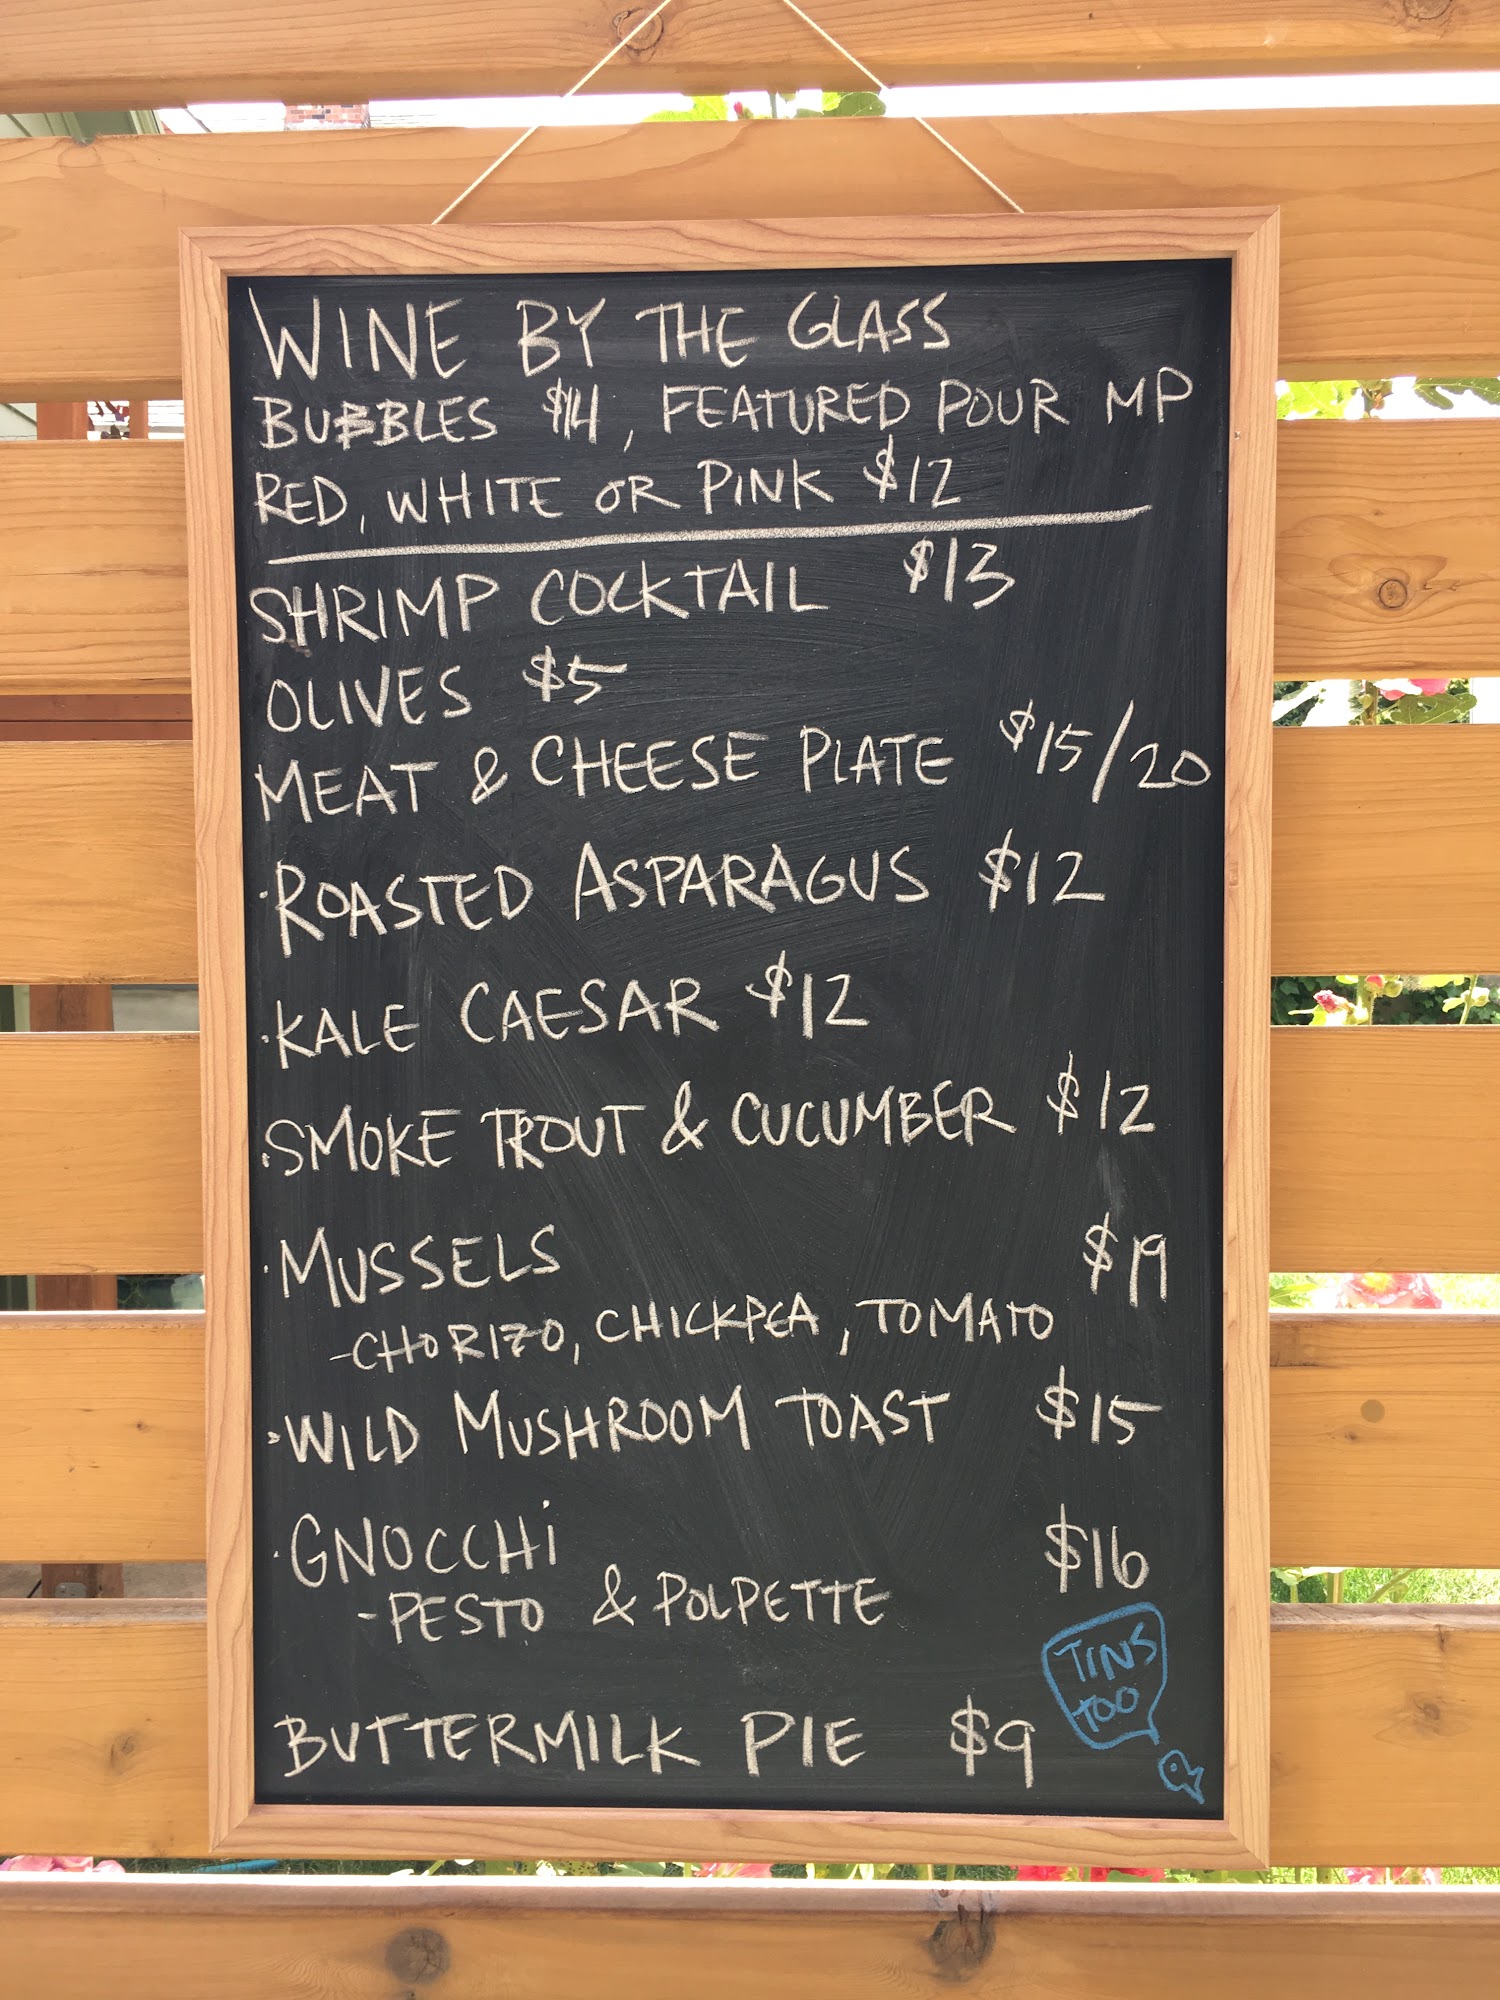 WINE BY THE GLASS
BUBBLES $14, FEATURED POUR MP
RED, WHITE OR PINK $12
SHRIMP COCKTAIL $13
OLIVES $5
MEAT & CHEESE PLATE $15/20
·ROASTED ASPARAGUS $12
·KALE CAESAR $12
·SMOKE TROUT & CUCUMBER $12
·MUSSELS $19
-CHORIZO, CHICKPEA, TOMATO
·WILD MUSHROOM TOAST $15
·GNOCCHi $16
-PESTO & POLPETTE
TINS
TOO
BUTTERMILK PIE $9